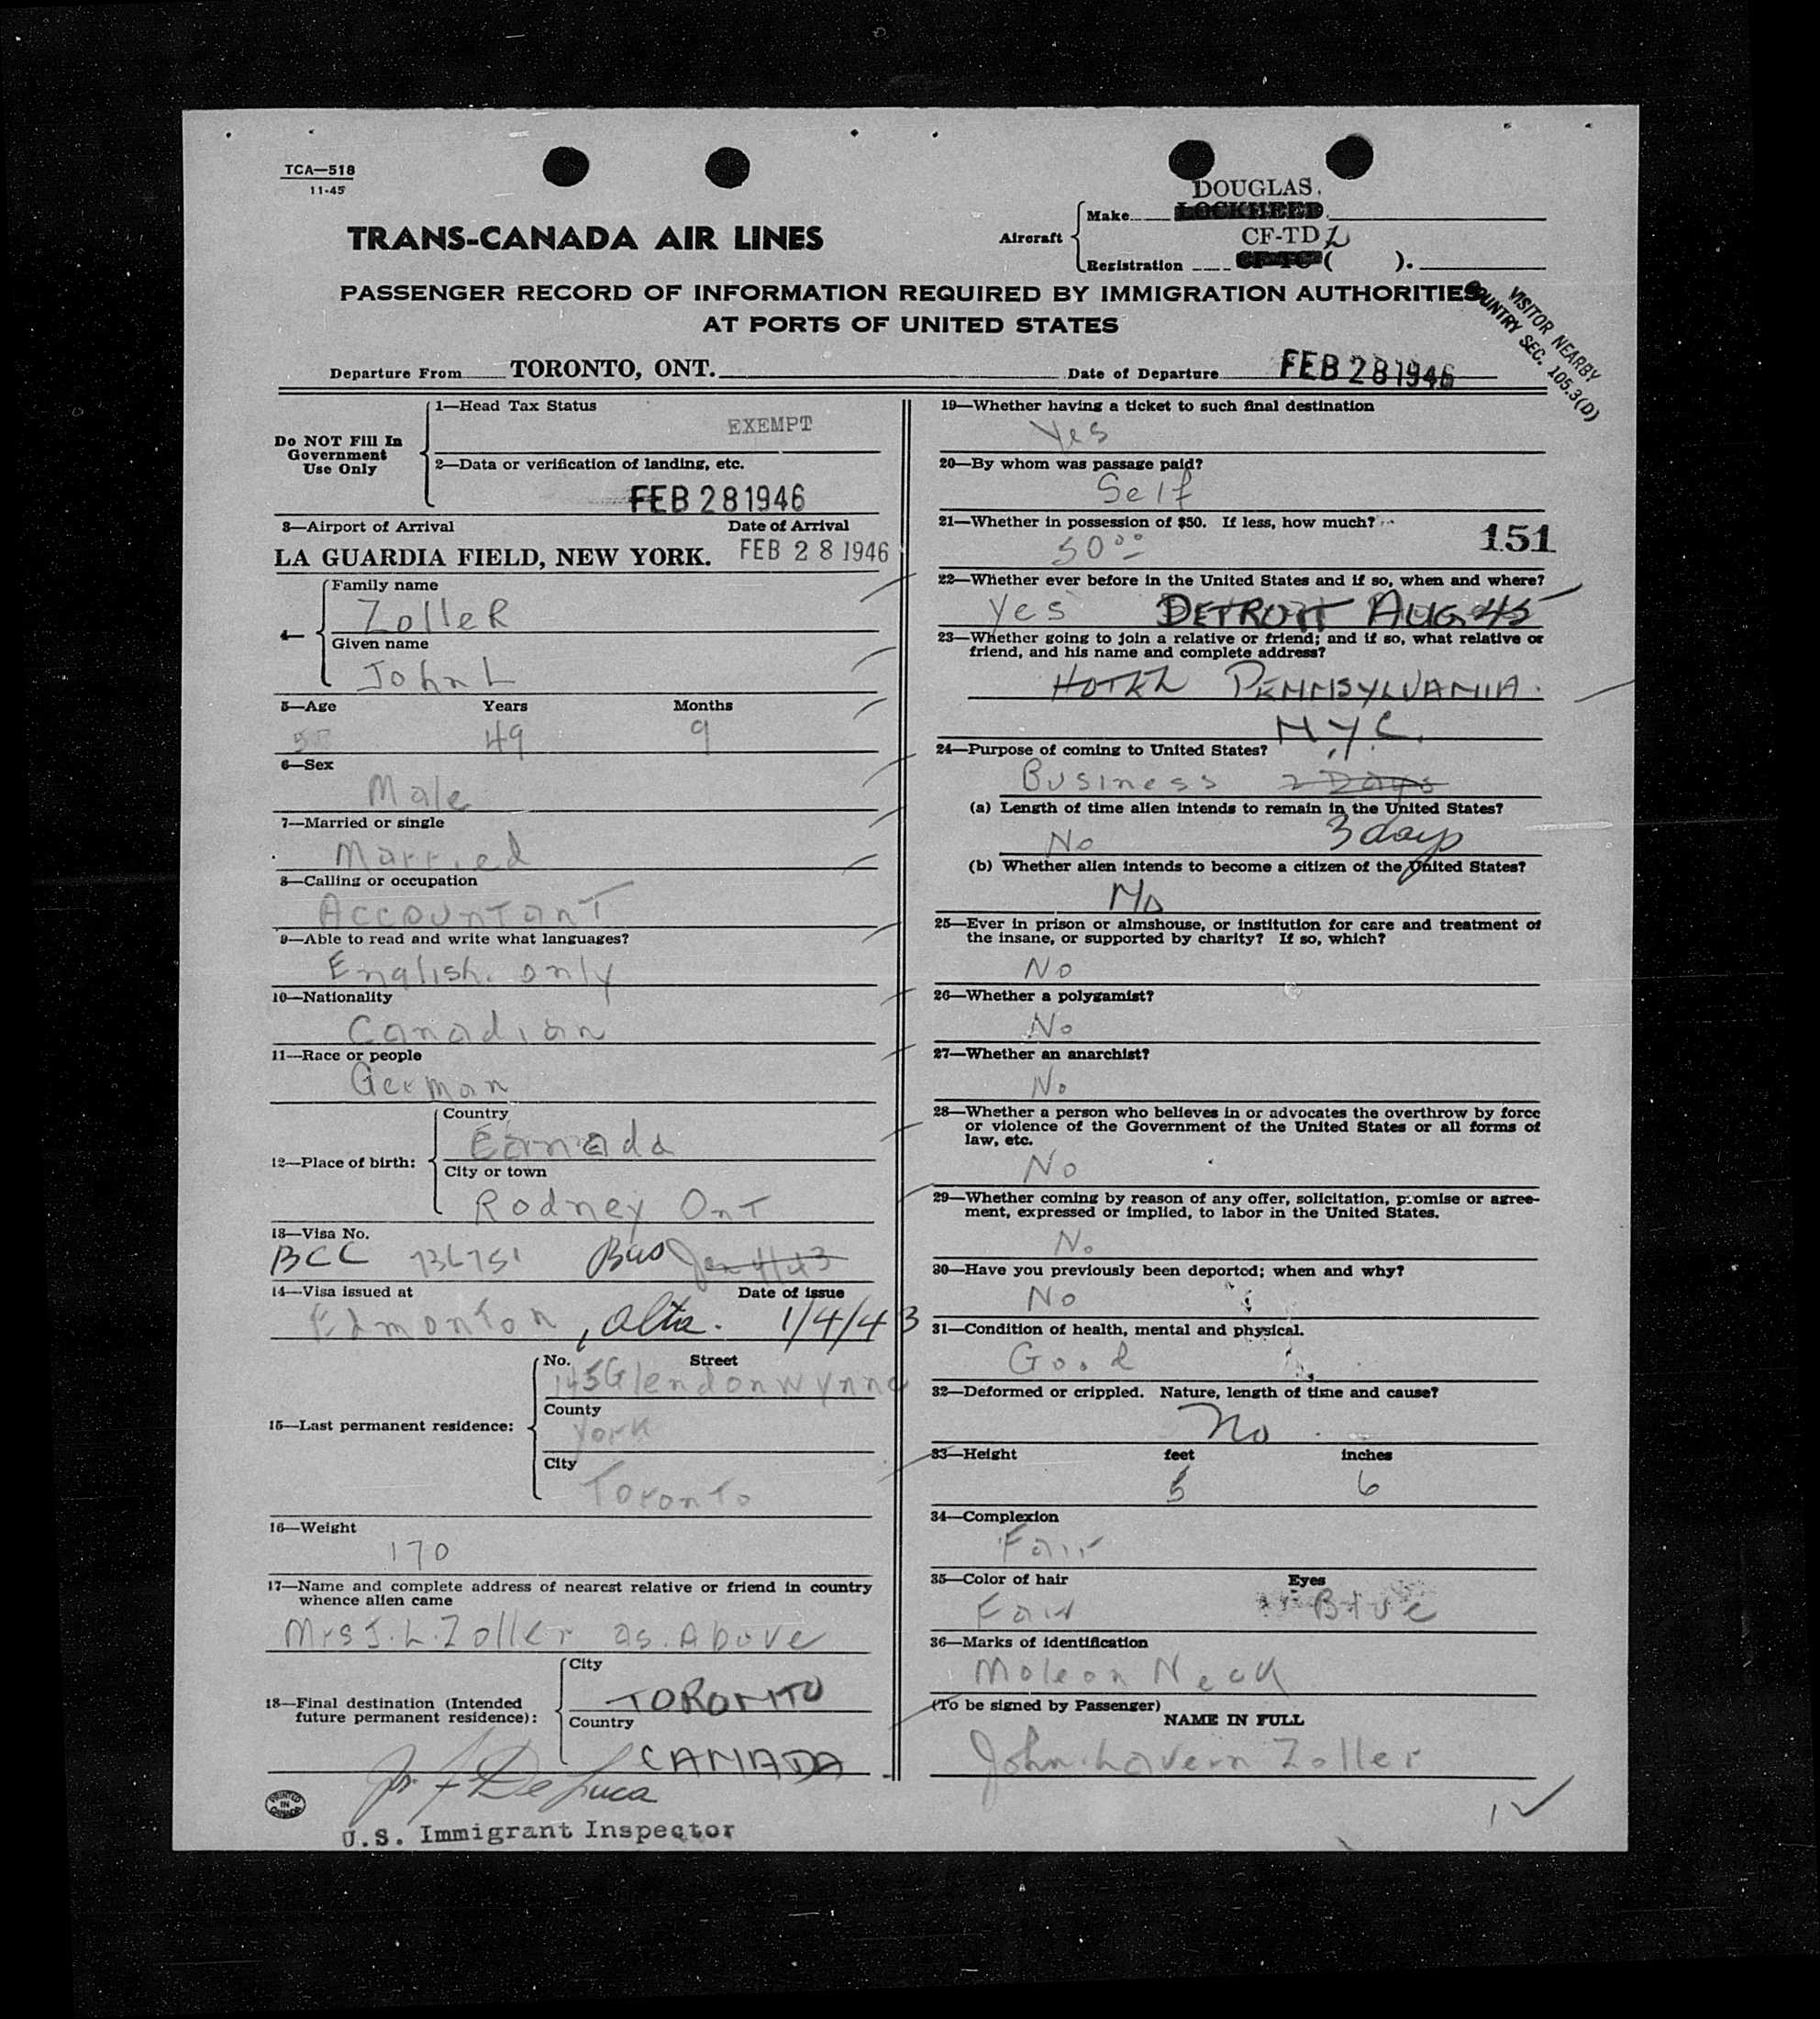 TCA—518
11-45
DOUGLAS.
Make LOCKHEED
TRANS-CANADA AIR LINES
Aircraft
CF-TDL
Registration CF-TC ( ).
PASSENGER RECORD OF INFORMATION REQUIRED BY IMMIGRATION AUTHORITIES
AT PORTS OF UNITED STATES
VISITOR NEARBY
COUNTRY SEC. 105.3(D)
Departure From TORONTO, ONT. Date of Departure FEB 28 1946
Do NOT Fill In
Government
Use Only
1—Head Tax Status
EXEMPT
2—Data or verification of landing, etc.
FEB 28 1946
3—Airport of Arrival Date of Arrival
LA GUARDIA FIELD, NEW YORK. FEB 28 1946
4—
Family name
ZolleR
Given name
John L
5—Age Years Months
49 9
6—Sex
Male
7—Married or single
Married
8—Calling or occupation
Accountant
9—Able to read and write what languages?
English. only
10—Nationality
Canadian
11—Race or people
German
12—Place of birth:
Country
Canada
City or town
Rodney Ont
13—Visa No.
BCC 736751 Bus Jan 4/43
14—Visa issued at Date of issue
Edmonton, Alta. 1/4/43
15—Last permanent residence:
No. Street
145 Glendonwynne
County
York
City
Toronto
16—Weight
170
17—Name and complete address of nearest relative or friend in country
whence alien came
Mrs J. L. Zoller as. Above
18—Final destination (Intended
future permanent residence):
City
TORONTO
Country
CANADA
Jos. F. De Luca
U.S. Immigrant Inspector
PRINTED
IN
CANADA
19—Whether having a ticket to such final destination
Yes
20—By whom was passage paid?
Self
21—Whether in possession of $50. If less, how much?
50.00
151
22—Whether ever before in the United States and if so, when and where?
Yes DETROIT AUG 45
23—Whether going to join a relative or friend; and if so, what relative or
friend, and his name and complete address?
HOTEL PENNSYLVANIA.
N.Y.C.
24—Purpose of coming to United States?
Business 2 Days
(a) Length of time alien intends to remain in the United States?
No 3 days
(b) Whether alien intends to become a citizen of the United States?
No
25—Ever in prison or almshouse, or institution for care and treatment of
the insane, or supported by charity? If so, which?
No
26—Whether a polygamist?
No
27—Whether an anarchist?
No
28—Whether a person who believes in or advocates the overthrow by force
or violence of the Government of the United States or all forms of
law, etc.
No
29—Whether coming by reason of any offer, solicitation, promise or agree-
ment, expressed or implied, to labor in the United States.
No
30—Have you previously been deported; when and why?
No
31—Condition of health, mental and physical.
Good
32—Deformed or crippled. Nature, length of time and cause?
No
33—Height feet inches
5 6
34—Complexion
Fair
35—Color of hair Eyes
Fair Blue
36—Marks of identification
Mole on Neck
(To be signed by Passenger)
NAME IN FULL
John Lavern Zoller